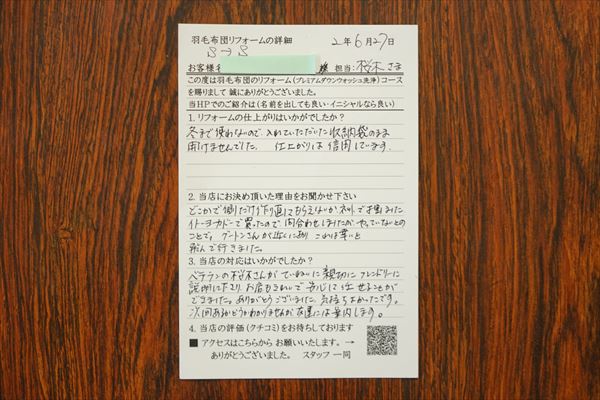 羽毛布団リフォームの詳細 2年6月27日
S→S
お客様名 様 担当:桜木さま
この度は羽毛布団のリフォーム(プレミアムダウンウォッシュ洗浄)コース
を賜りまして 誠にありがとうございました。
当HPでのご紹介は(名前を出しても良い・イニシャルなら良い)
1. リフォームの仕上がりはいかがでしたか?
冬まで使わないので、入れていただいた収納袋のまま
開けませんでした。 仕上がりは信用しています。
2. 当店にお決め頂いた理由をお聞かせ下さい
どこかで側だけ作り直してもらえないか ネットで お聞きました
イトーヨーカドーで買ったので 問合わせしましたが やっていないとの
ことで、グートンさんが近くにあり これは幸いと
飛んで行きました。
3. 当店の対応はいかがでしたか?
ベテランの桜木さんが ていねいに 親切に フレンドリーに
説明下さり お店もきれいで 安心して 任せることが
できました。ありがとうございました 気持ちよかったです。
次回あるかどうかわかりませんが 友達には案内します。
4. 当店の評価(クチコミ)をお待ちしております
■ アクセスはこちらから お願いいたします。→
ありがとうございました。 スタッフ 一同